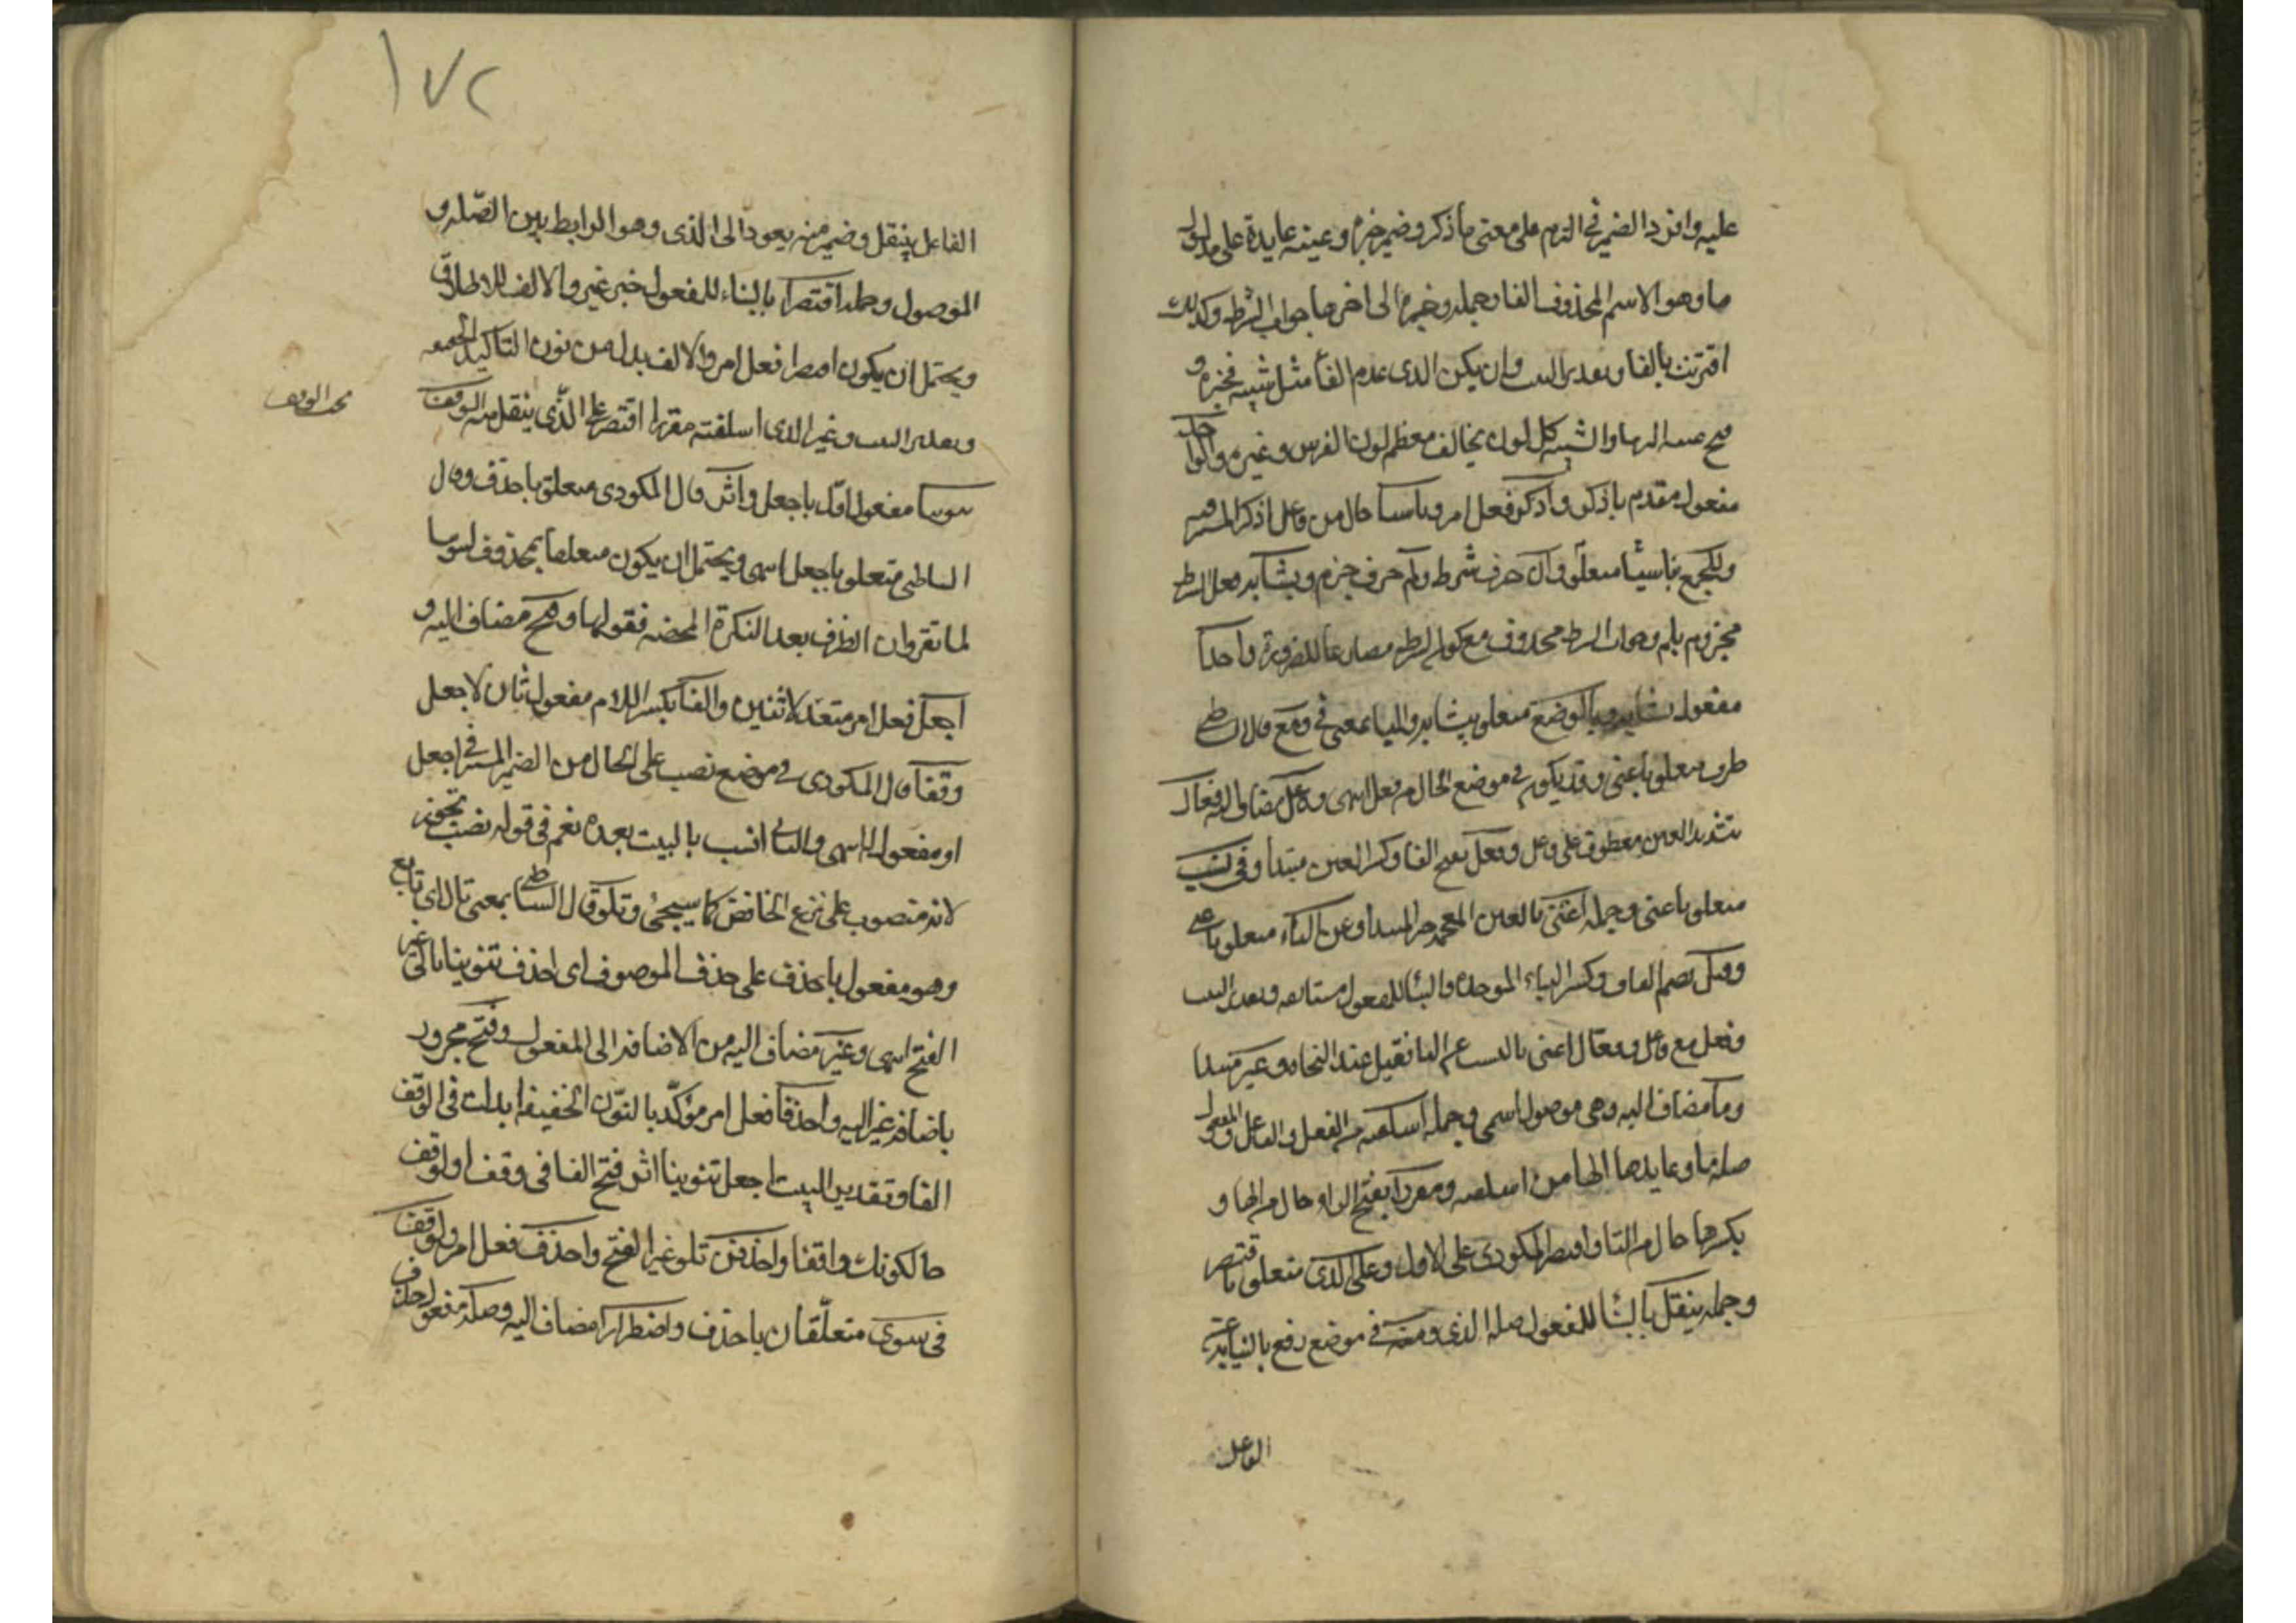 عليه وافرد الضمير في التزم على معنى ما ذكر وضمير خبره وعينه عايدة على مدلول
ما وهو الاسم المحذوف الفا وجملة وخبره الى اخرها جواب الشرط وكذلك
اقترنت بالفا وتقدير البيت وان يكن الذى عدم الفا مثل شية فجبره و
فتح عينه التزما والشية كل لون يخالف معظم لون الفرس وغيره والواحد
مفعول مقدم باذكر واذكر فعل امر وناسبا حال من فاعل اذكر المستتر فيه
وللجمع بناسبا متعلق وان حرف شرط ولم حرف جزم ويشابه فعل الشرط
مجزوم بلم وجواب الشرط محذوف مع كون الشرط مضارعا للضرورة واحدا
مفعول يشابه وبالوضع متعلق بيشابه والبا بمعنى في ومع قال الشاطبي
ظرف متعلق باغنى وقد يكون في موضع الحال من فعل انتهى وفاعل مضاف اليه وفعال
بتشديد العين معطوف على فاعل وفعل بفتح الفا وكسر العين مبتدأ وفي نسب
متعلق باغنى وجملة اغنى بالغين المعجمة خبر المبتدأ وعن الياء متعلق باغنى
وقبل بضم القاف وكسر الباء الموحدة والبنا للمفعول مستانفه وتقدير البيت
وفعل مع فاعل وفعال اغنى بالنسب عن اليا فقبل عند النحاه وغير مبتدا
وما مضاف اليه وهي موصول اسمى وجملة اسلفته من الفعل والفاعل والمفعول
صلة ما وعايدها الها من اسلفته ومقررا بفتح الراء حال من الها و
بكسرها حال من التا واقتصر المكودى على الاول وعلى الذى متعلق باقتصر
وجملة ينقل بالبنا للمفعول صلة الذى ومنه في موضع رفع بالنيابة عن
الفاعل
١٧٢
الفاعل بينقل وضمير منه يعود الى الذى وهو الرابط بين الصلة و
الموصول وجملة اقتصرا بالبناء للمفعول خبر غير والالف للاطلاق
ويحتمل ان يكون اقتصرا فعل امر والالف بدل من نون التاكيد الخفيفه
وتقدير البيت وغير الذى اسلفته مقررا اقتصر على الذى ينقل منه الوقف
بحث الوقف
تنوينا مفعول اول باجعل واثر قال المكودى متعلق باحذف وقال
الشاطبي متعلق باجعل انتهى ويحتمل ان يكون متعلقا بمحذوف لتنوينا
لما تقرر ان الظرف بعد النكرة المحضه فقولها وفتح مضاف اليه و
اجعل فعل امر متعد لاثنين والفا بكسر اللام مفعول ثان لاجعل
وقفا قال المكودى في موضع نصب على الحال من الضمير المستتر في اجعل
او مفعول له انتهى والثاني انسب بالبيت بعده نعم في قوله نصب تجوز
لانه منصوب على نزع الخافض كما سيجئ وتلو قال الشاطبي بمعنى تال اى تابع
وهو مفعول باحذف على حذف الموصوف اى احذف تنوينا تالى غير
الفتح انتهى وغير مضاف اليه من الاضافه الى المفعول وفتح مجرور
باضافه غير اليه واحذفا فعل امر مؤكد بالنون الخفيفه ابدلت في الوقف
الفا وتقدير البيت اجعل تنوينا اثر فتح الفا في وقف او لوقف
حالكونك واقفا واحذفن تلو غير الفتح واحذف فعل امر ولوقف
في سوى متعلقان باحذف واضطرار مضاف اليه وصلة مفعول احذف